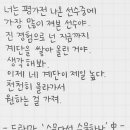 너는 평가전 나온 선수중에
가장 많이 져본 선수야.
진 경험으로 넌 지금까지
계단을 쌓아 올린 거야.
생각해봐.
이제 네 계단이 제일 높다.
천천히 올라가서
원하는 걸 가져.
- 드라마 '스물다섯 스물하나' 中 -